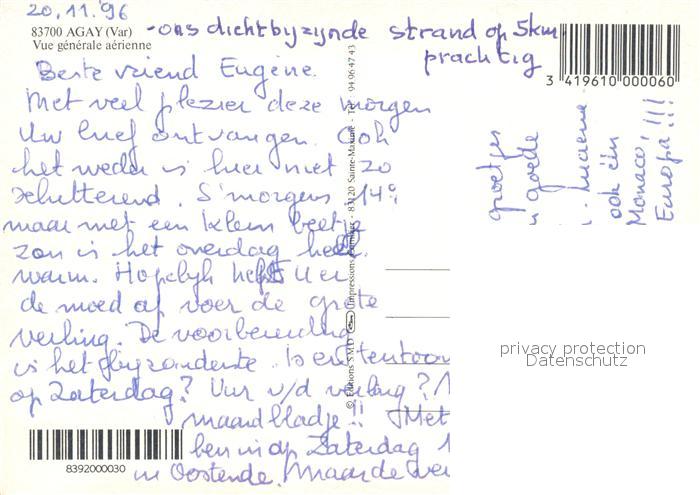 20.11.'96
83700 AGAY (Var)
Vue générale aérienne
- ons dichtbyzynde strand op 5km
prachtig
3 419610 000060
Beste vriend Eugène.
Met veel plezier deze morgen
Uw brief ontvangen. Ook
het weder is hier niet zo
schitterend. S'morgens 14°
maar met een klein beetje
zon is het overdag heel
warm. Hopelyk hebt U er
de moed af voor de grote
veiling. De voorbereiding
is het byzonderste. Is er
op Zaterdag? Uur v/d veiling?
maandbladje!! Met
ben in op Zaterdag 1
in Oostende. Maar de
8392000030
© Editions S.M.D. Impressions - 83120 Sainte-Maxime - Tél. 94 96 47 43
groetjes
goede
ook één
Monaco,!!!
Europa!!!
privacy protection
Datenschutz